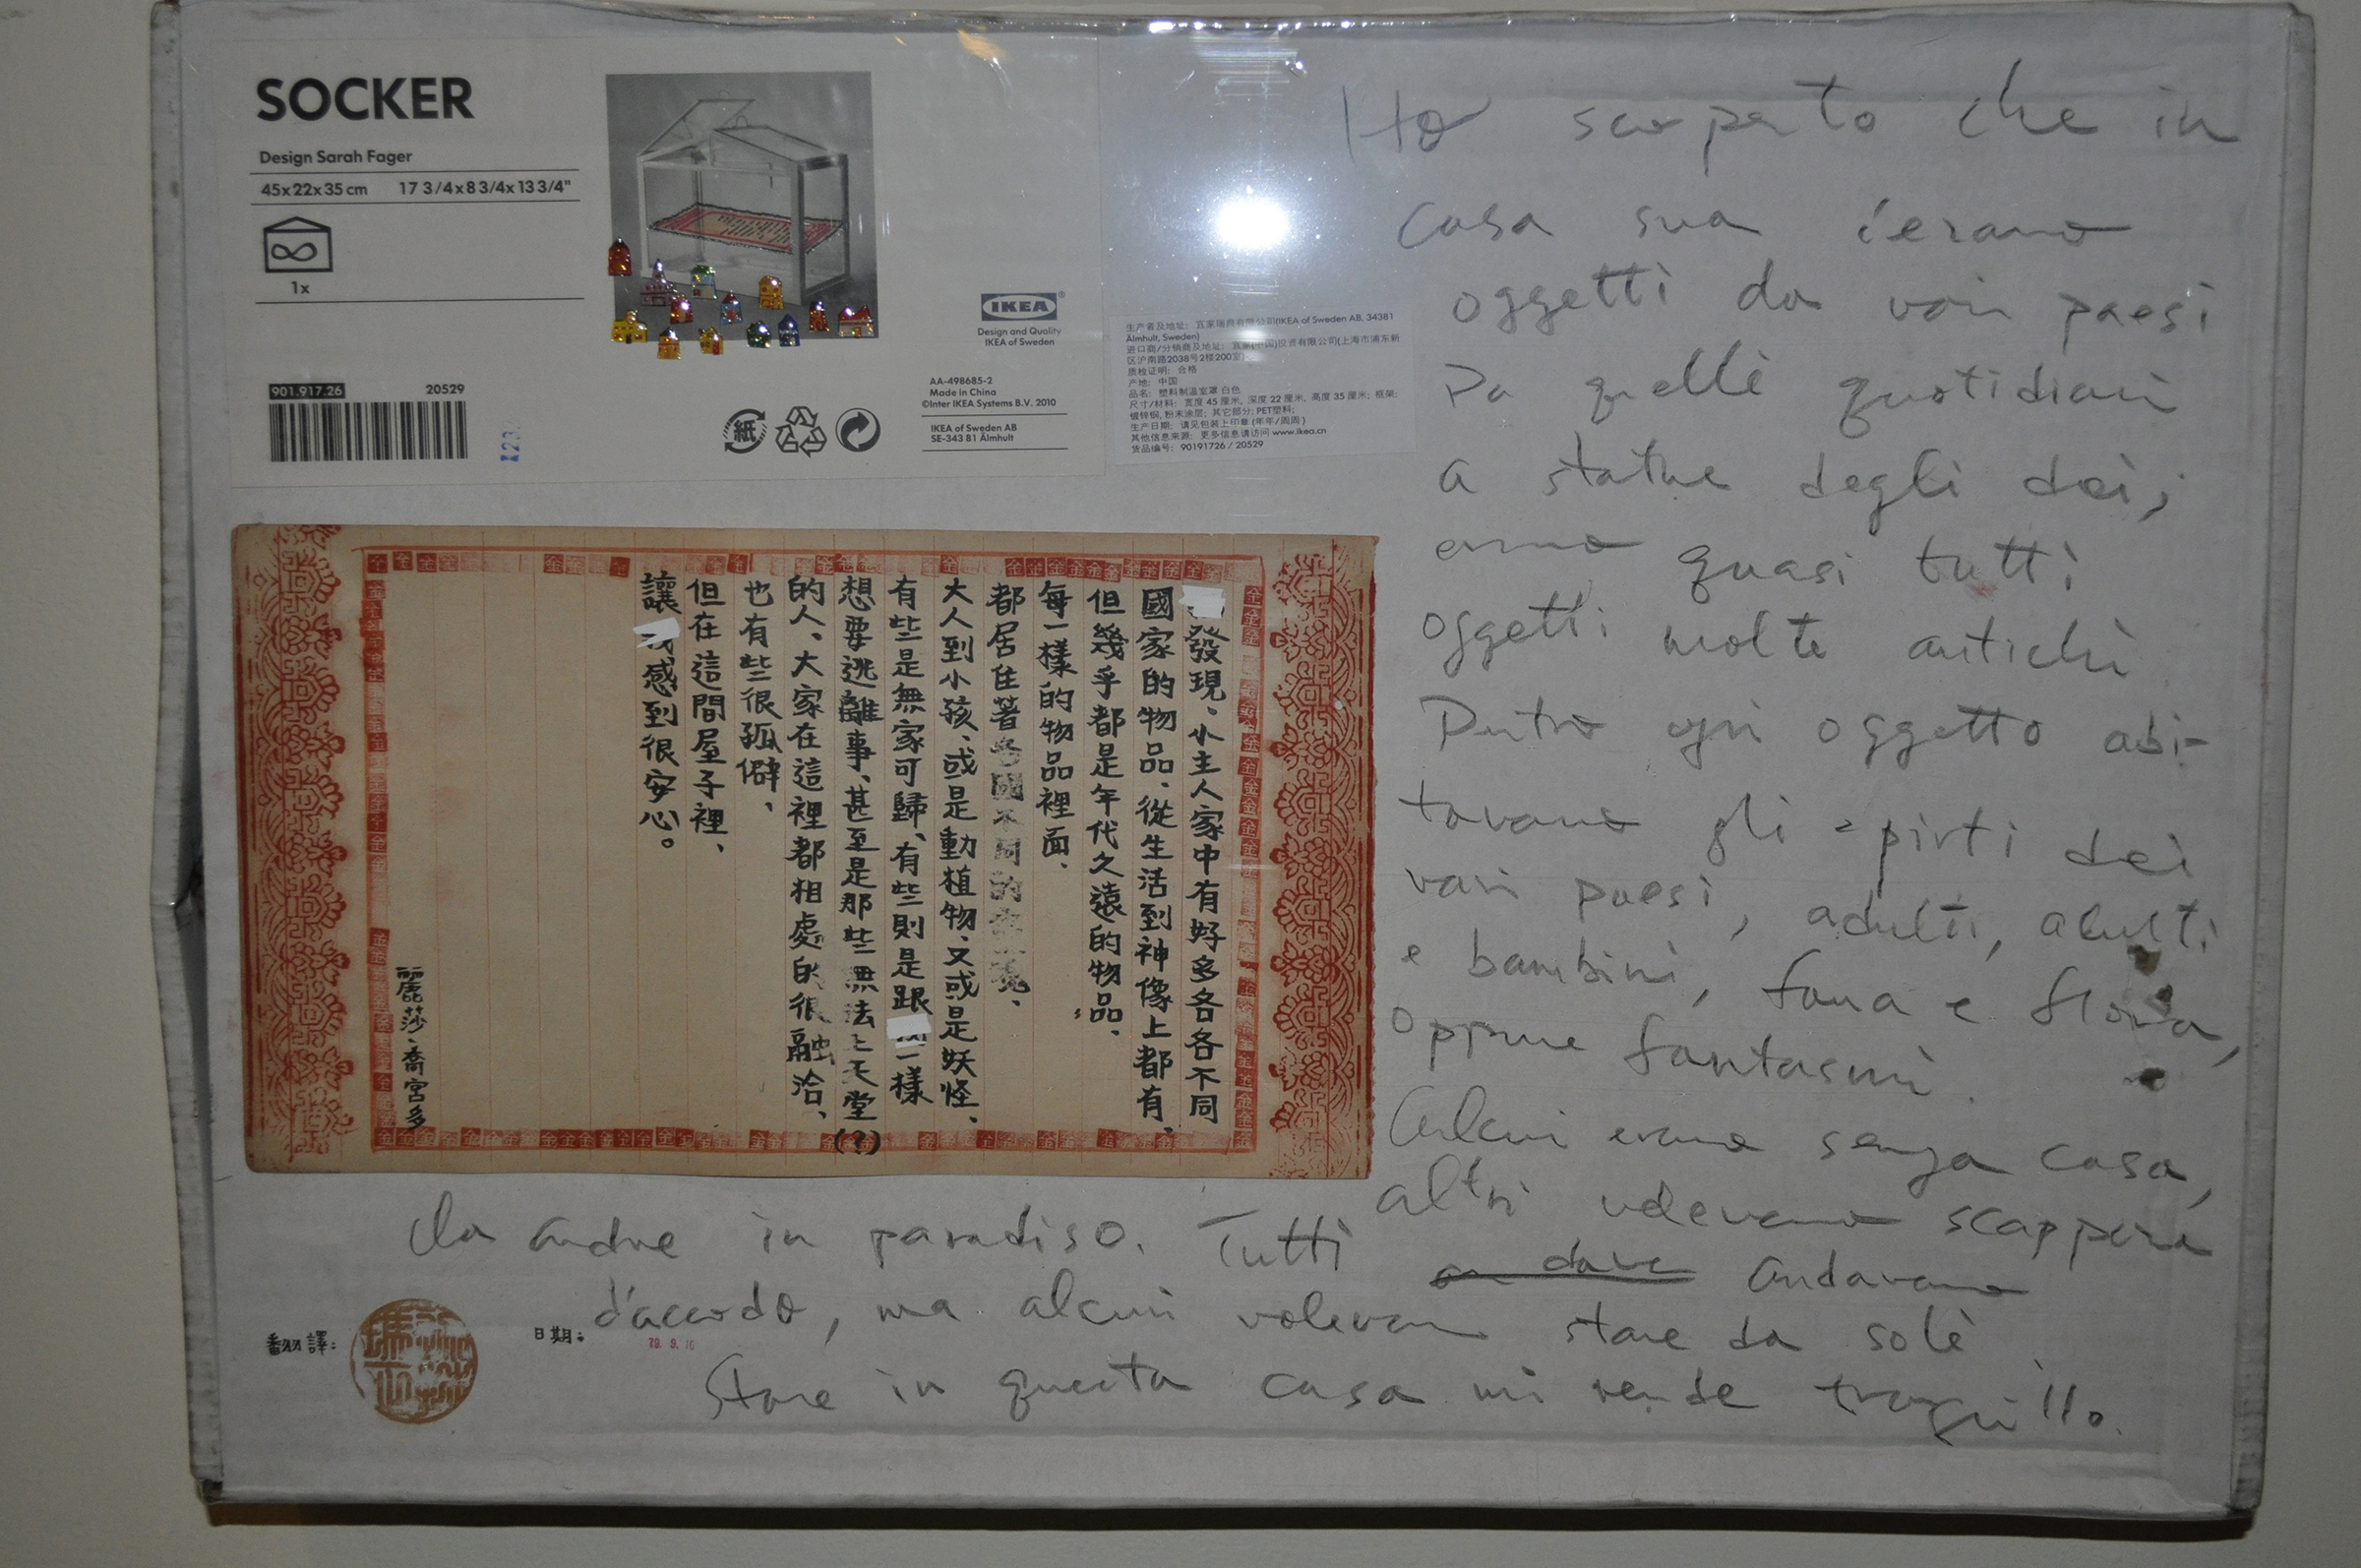 SOCKER
Design Sarah Fager
45x22x35 cm 17 3/4x8 3/4x13 3/4"
1x
901.917.26 20529
IKEA
Design and Quality
IKEA of Sweden
AA-498685-2
Made in China
©Inter IKEA Systems B.V. 2010
IKEA of Sweden AB
SE-343 81 Älmhult
紙
生产者及地址: 宜家瑞典有限公司(IKEA of Sweden AB, 34381
Älmhult, Sweden)
进口商/分销商及地址: 宜家(中国)投资有限公司(上海市浦东新
区沪南路2038号2楼200室)
质检证明: 合格
产地: 中国
品名: 塑料制温室罩 白色
尺寸/材料: 宽度 45 厘米, 深度 22 厘米, 高度 35 厘米; 框架:
镀锌钢, 粉末涂层; 其它部分: PET塑料;
生产日期: 请见包装上印章 (年年/周周)
其他信息来源: 更多信息请访问 www.ikea.cn
货品编号: 90191726 / 20529
發現、小主人家中有好多各各不同
國家的物品、從生活到神像上都有、
但幾乎都是年代久遠的物品、
每一樣的物品裡面、
都居住著各國不同的
大人到小孩、或是動植物、又或是妖怪、
有些是無家可歸、有些則是跟 一樣
想要逃離事、甚至是那些無法上天堂(?)
的人、大家在這裡都相處的很融洽、
也有些很孤僻、
但在這間屋子裡、
讓我感到很安心。
麗莎·喬宮多
Ho scoperto che in
casa sua c'erano
oggetti da vari paesi
Da quelli quotidiani
a statue degli dei,
erano quasi tutti
oggetti molto antichi
Dentro ogni oggetto abi-
tavano gli spirti dei
vari paesi, adulti, adulti
e bambini, fauna e flora,
oppure fantasmi.
Alcuni erano senza casa,
altri volevano scappare
da andre in paradiso. Tutti andavano
d'accordo, ma alcuni volevano stare da soli
Stare in questa casa mi rende tranquillo.
翻譯:
日期: